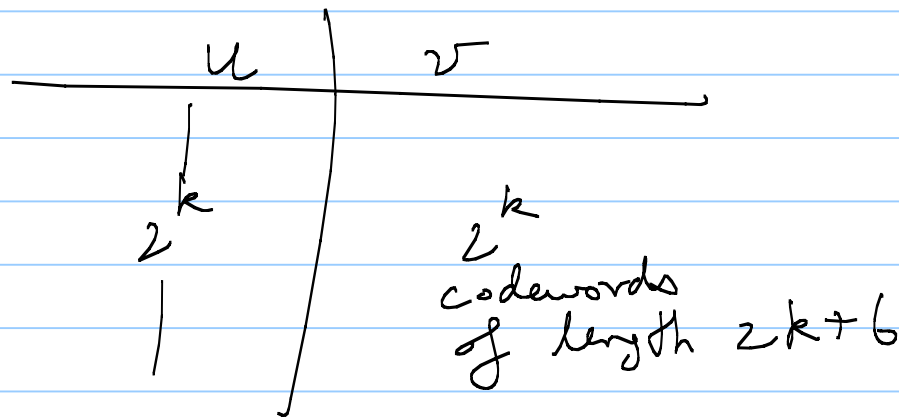 u v
2^k 2^k
codewords
of length 2k+6